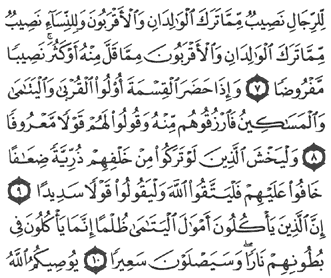 لِّلرِّجَالِ نَصِيبٌ مِّمَّا تَرَكَ الْوَالِدَانِ وَالْأَقْرَبُونَ وَلِلنِّسَاءِ نَصِيبٌ
مِّمَّا تَرَكَ الْوَالِدَانِ وَالْأَقْرَبُونَ مِمَّا قَلَّ مِنْهُ أَوْ كَثُرَ ۚ نَصِيبًا
مَّفْرُوضًا ٧ وَإِذَا حَضَرَ الْقِسْمَةَ أُولُوا الْقُرْبَىٰ وَالْيَتَامَىٰ
وَالْمَسَاكِينُ فَارْزُقُوهُم مِّنْهُ وَقُولُوا لَهُمْ قَوْلًا مَّعْرُوفًا
٨ وَلْيَخْشَ الَّذِينَ لَوْ تَرَكُوا مِنْ خَلْفِهِمْ ذُرِّيَّةً ضِعَافًا
خَافُوا عَلَيْهِمْ فَلْيَتَّقُوا اللَّهَ وَلْيَقُولُوا قَوْلًا سَدِيدًا ٩
إِنَّ الَّذِينَ يَأْكُلُونَ أَمْوَالَ الْيَتَامَىٰ ظُلْمًا إِنَّمَا يَأْكُلُونَ فِي
بُطُونِهِمْ نَارًا ۖ وَسَيَصْلَوْنَ سَعِيرًا ١٠ يُوصِيكُمُ اللَّهُ